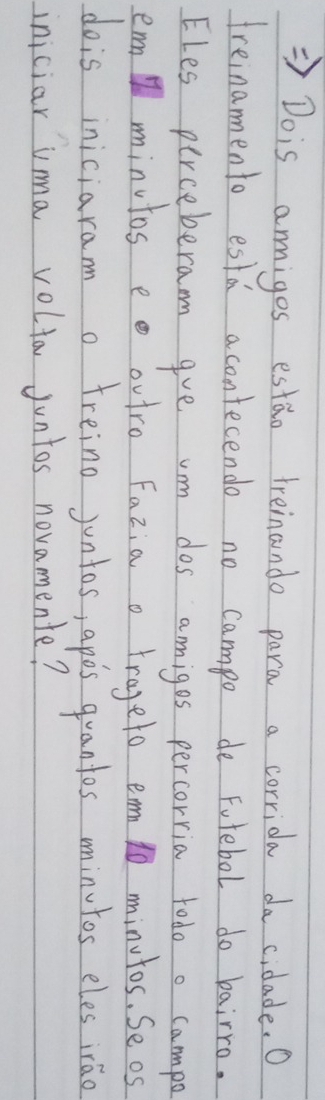 => Dois amigos estão treinando para a corrida da cidade. O
treinamento está acontecendo no campo de Futebol do bairro.
Eles perceberam que um dos amigos percorria todo o campo
em 7 minutos e o outro Fazia o trageto em 10 minutos. Se os
dois iniciaram o treino juntos, após quantos minutos eles irão
iniciar uma volta juntos novamente?